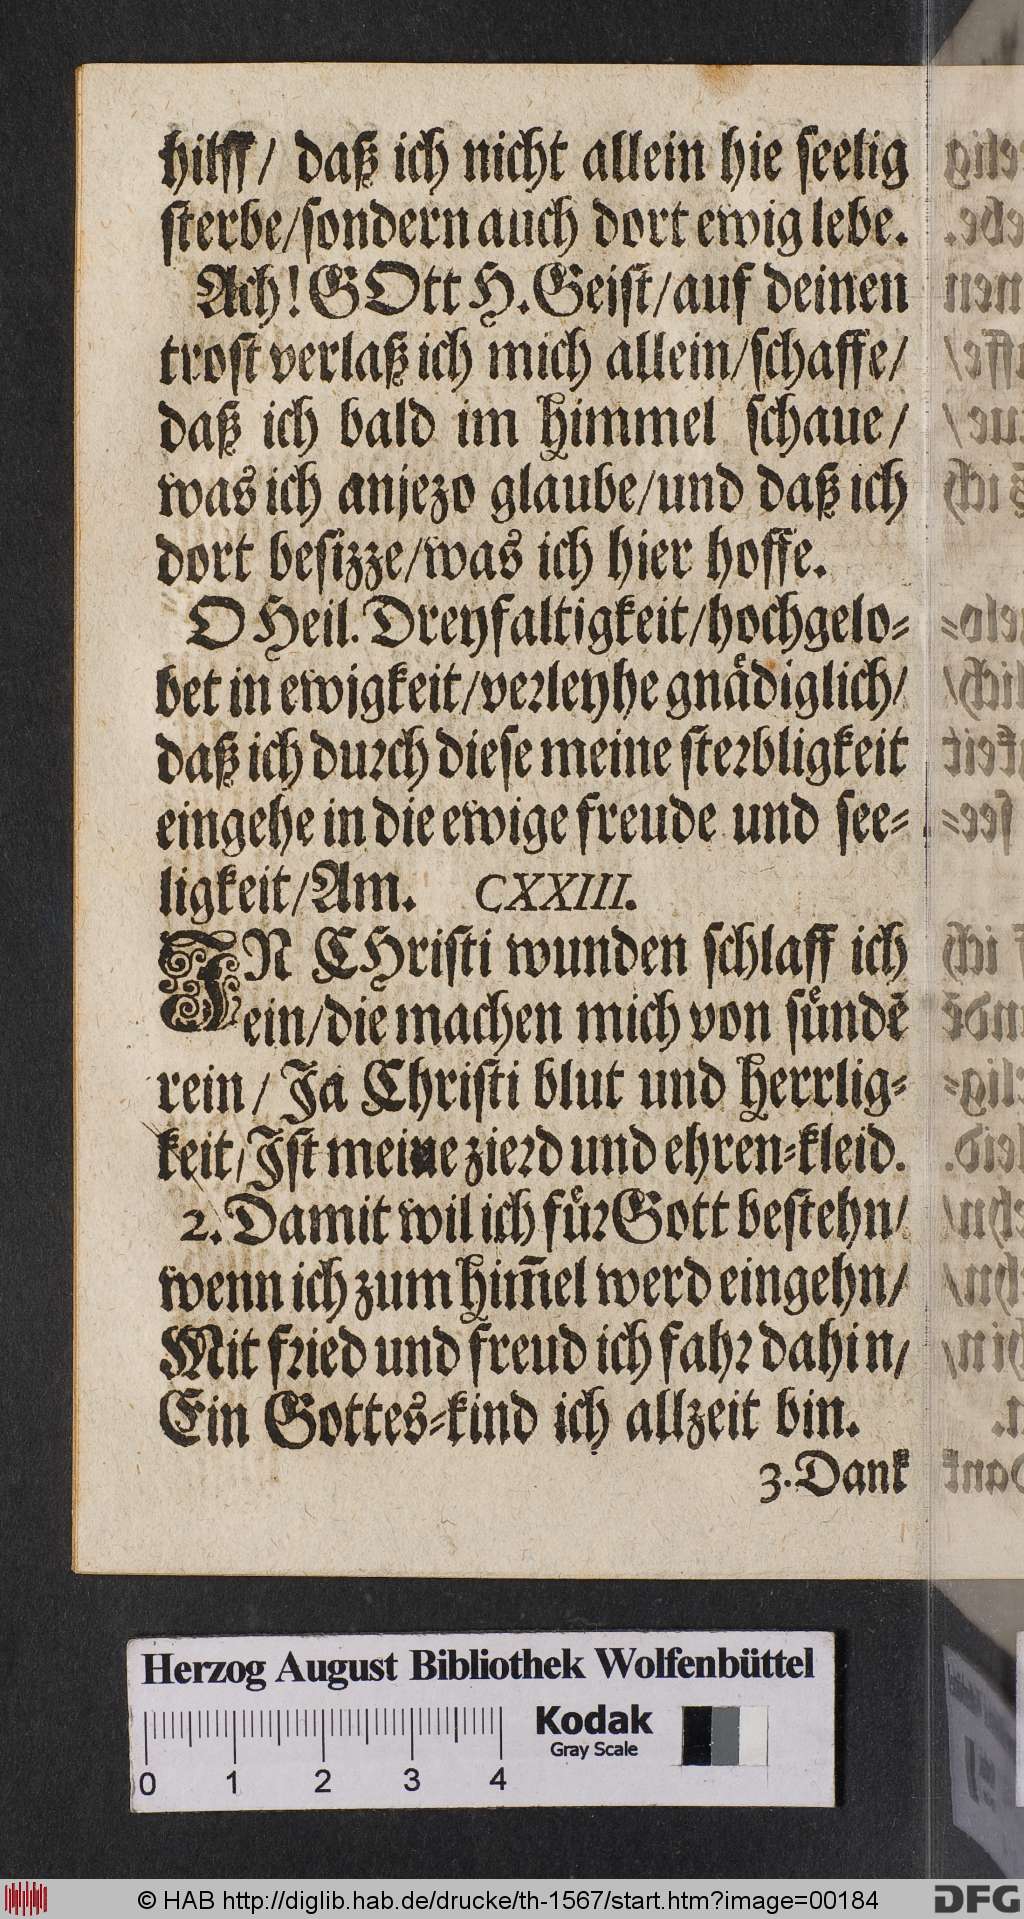 hilff/ daß ich nicht allein hie seelig
sterbe/sondern auch dort ewig lebe.
Ach! GOtt H. Geist/auf deinen
trost verlaß ich mich allein/schaffe/
daß ich bald im himmel schaue/
was ich anjezo glaube/und daß ich
dort besizze/was ich hier hoffe.
O Heil. Dreyfaltigkeit/hochgelo-
bet in ewigkeit/verleyhe gnaͤdiglich/
daß ich durch diese meine sterbligkeit
eingehe in die ewige freude und see-
ligkeit/Am. CXXIII.
IN CHristi wunden schlaff ich
ein/die machen mich von suͤndẽ
rein/ Ja Christi blut und herrlig-
keit/Ist meine zierd und ehren-kleid.
2. Damit wil ich fuͤr Gott bestehn/
wenn ich zum him̃el werd eingehn/
Mit fried und freud ich fahr dahin/
Ein Gottes-kind ich allzeit bin.
3. Dank
Herzog August Bibliothek Wolfenbüttel
Kodak
Gray Scale
0 1 2 3 4
© HAB http://diglib.hab.de/drucke/th-1567/start.htm?image=00184
DFG